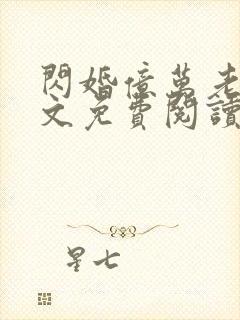 閃婚億萬老
文免費閱讀
星七